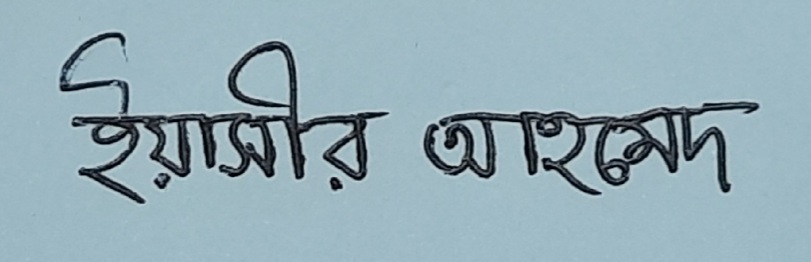 ইয়াসীর আহমেদ